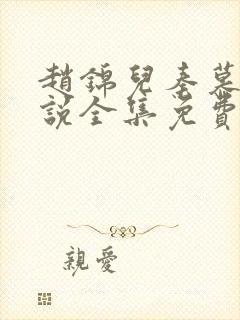 趙錦兒秦慕
說全集免費
親愛